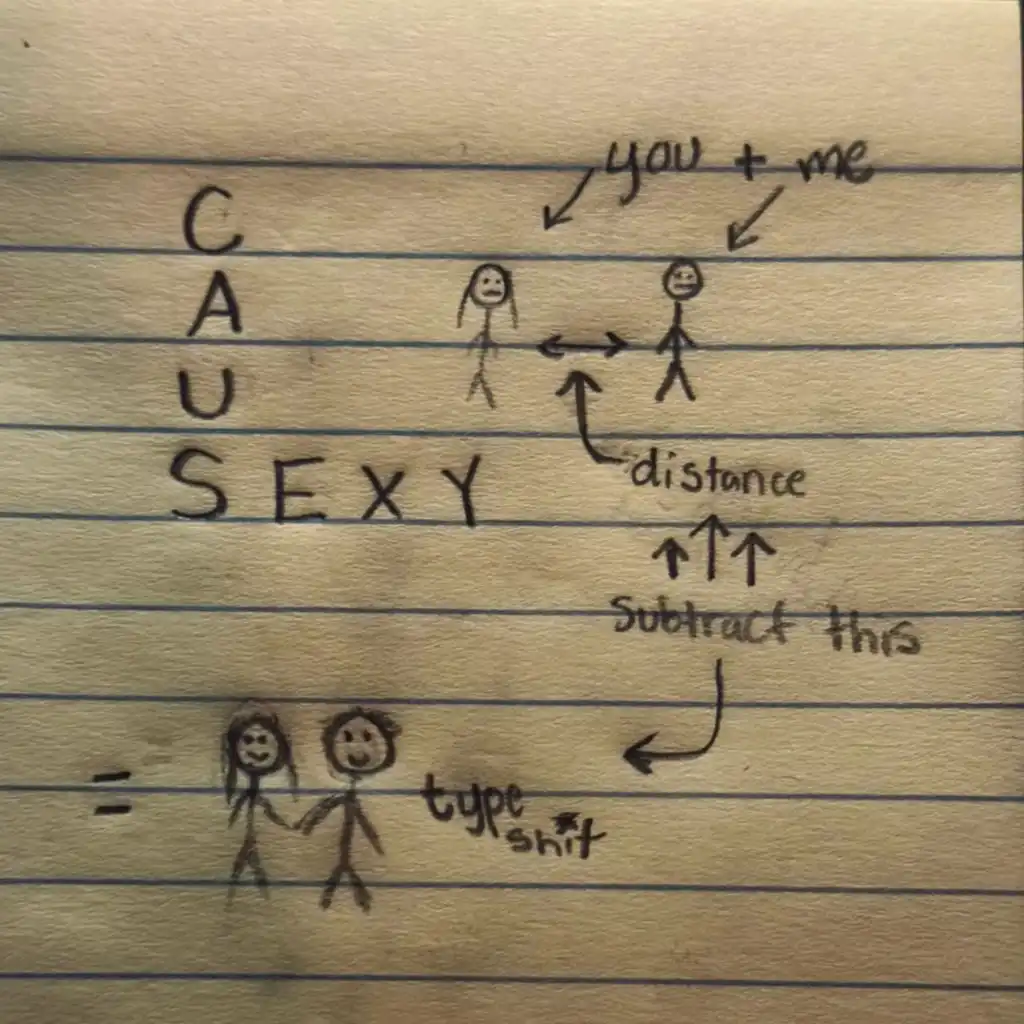 you + me
C
A
U
SEXY
distance
subtract this
=
type
sh*t